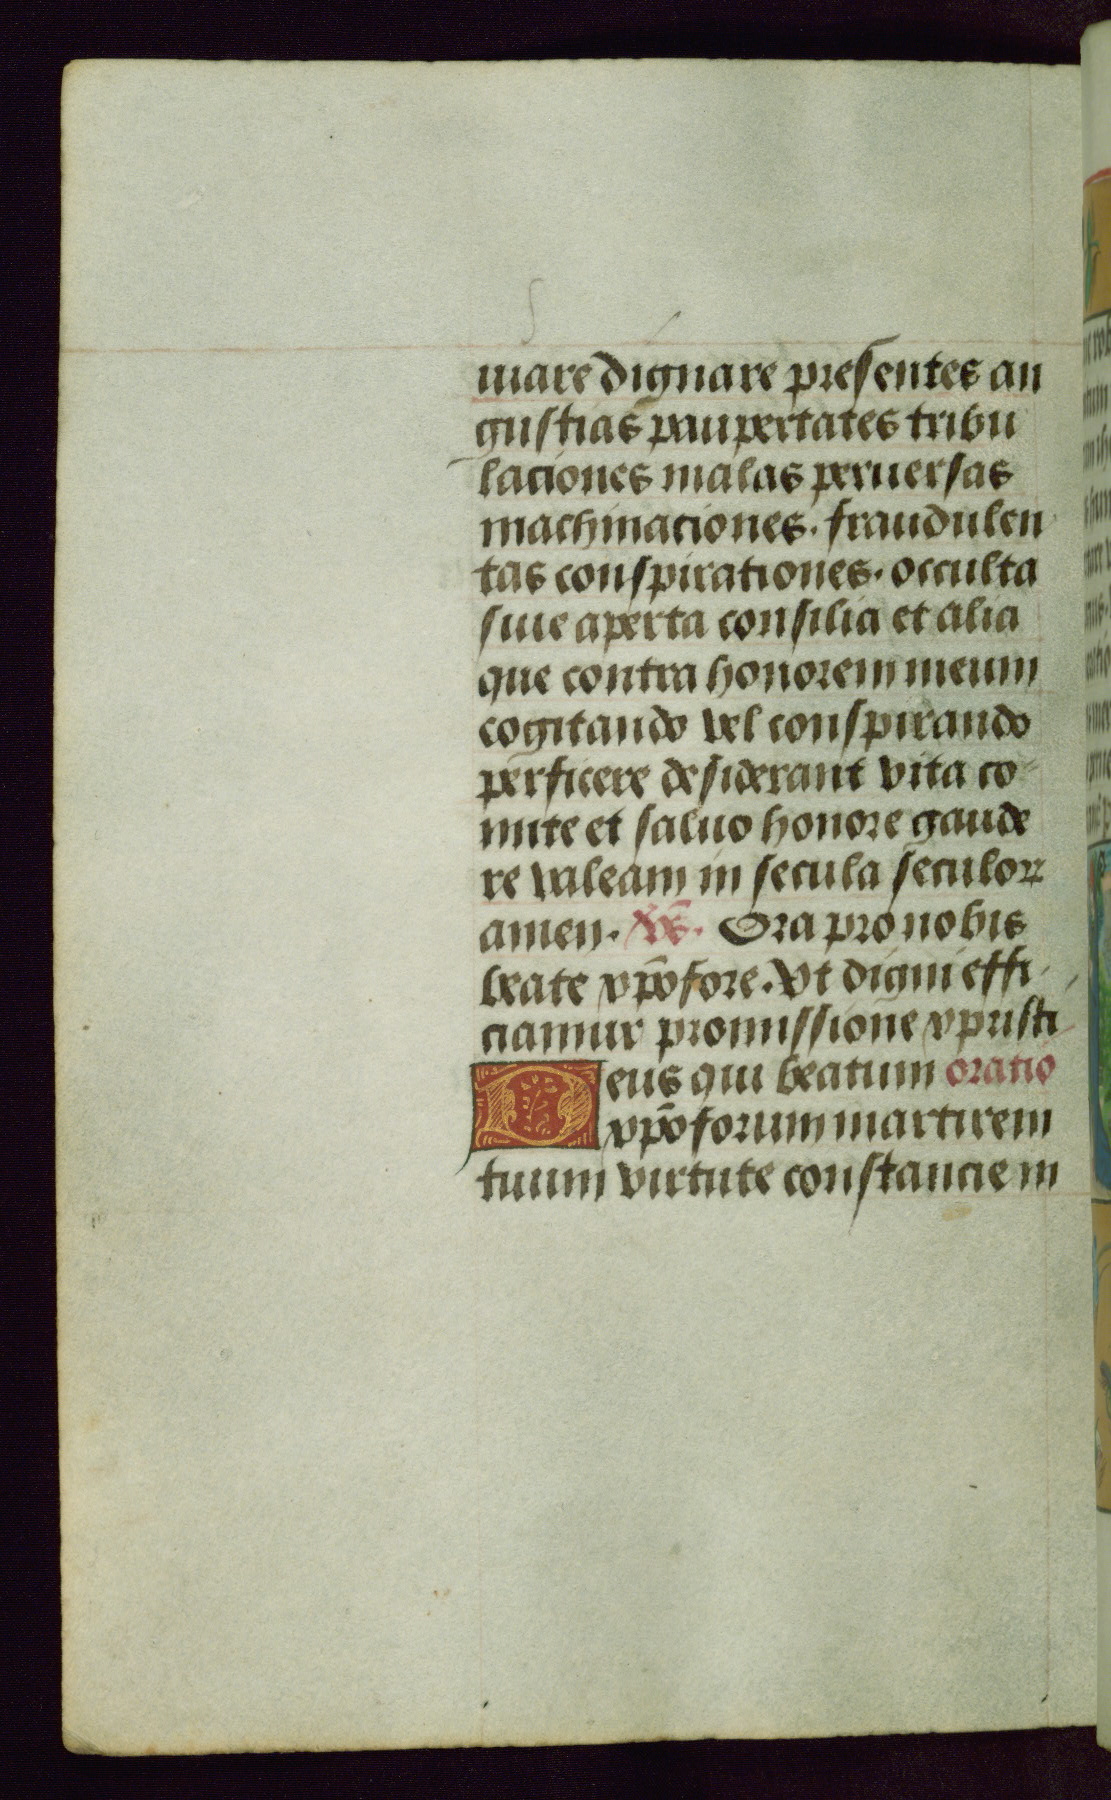 mare dignare presentes an
gustias paupertates tribu
laciones malas peruersas
machinaciones. fraudulen
tas conspirationes. occulta
siue aperta consilia et alia
que contra honorem meum
cogitando vel conspirando
perficere desiderant vita co
mite et saluo honore gaude
re valeam in secula seculoꝝ
amen. Vs̄. Ora pro nobis
beate xp̄ofore. Vt digni effi
ciamur promissione xpristi
Deus qui beatum oratio
xp̄oforum martirem
tuum virtute constancie in